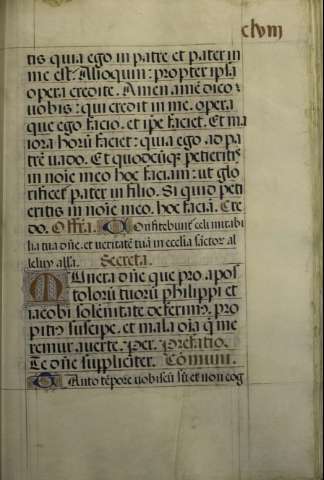 clviij
tis quia ego in patre et pater in
me est. Alioquin: propter ipsa
opera credite. Amen amē dico
uobis: qui credit in me. opera
que ego facio. et ip̄e faciet. Et ma
iora horū faciet: quia ego ad pa
trē uado. Et quodcūq; petieritis
in noīe meo hoc faciam: ut glo
rificet̄ pater in filio. Si quid peti
eritis in noīe meo. hoc faciā. Cre
do. Offra. Confitebunt̄ celi mirabi
lia tua dn̄e. et ueritatē tuā in ecclīa sāctor al
leluia alla. Secreta.
Munera dn̄e que pro apos
tolorū tuorū philippi et
iacobi solēnitate deferim9. pro
piti9 suscipe. et mala oīa q̄ me
remur auerte. Per. Prefatio.
Te dn̄e suppliciter. Cōmuni.
Tanto tēpore uobiscū sū et non cog